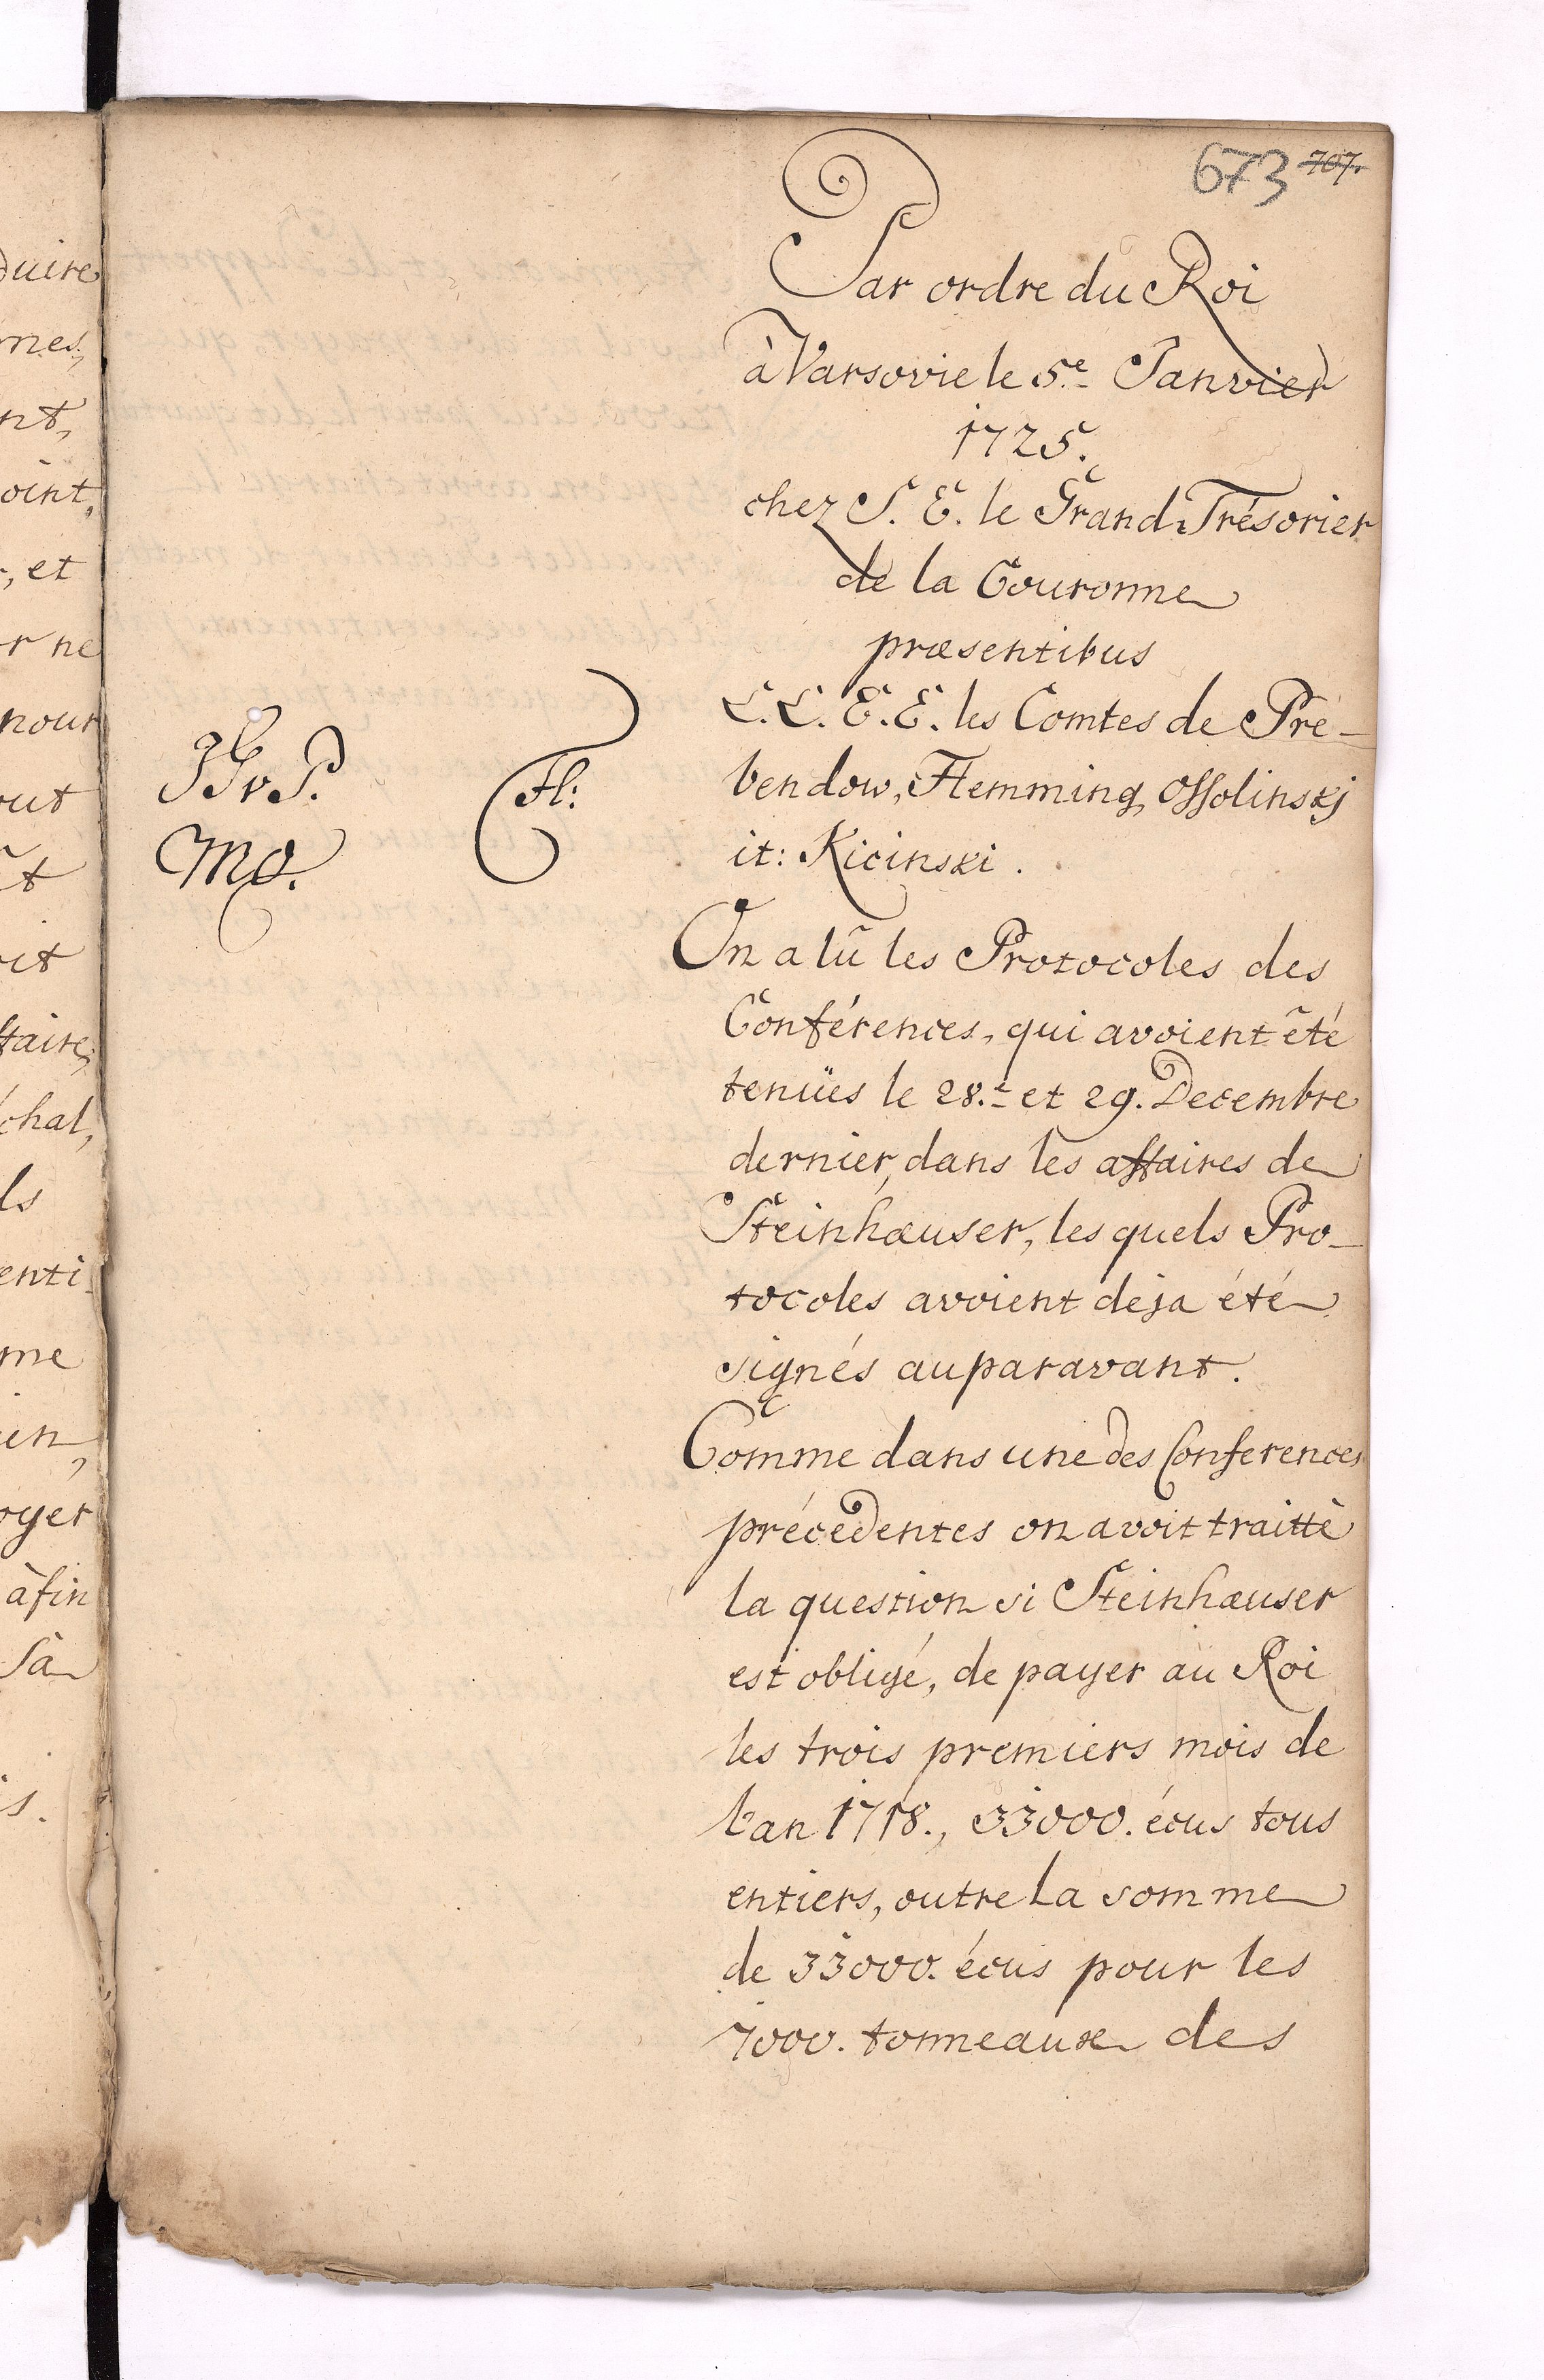 673 707.
Par ordre du Roi
à Varsovie le 5.e Janvier
1725.
chez S. E. le Grand-Trésorier
de la Couronne
præsentibus
L.L. E.E. les Comtes de Pre-
bendow, Flemming, Ossolinskj
it: Kicinski.
Fl:
Mo.
On a lû les Protocoles des
Conférences, qui avoient êté
tenües le 28.e et 29. Decembre
dernier, dans les affaires de
Steinhæuser, les quels Pro-
tocoles avoient deja été
signés auparavant.
Comme dans une des Conferences
précedentes on avoit traitté
la question si Steinhæuser
est obligé, de payer au Roi
les trois premiers mois de
l'an 1718., 33000. écus tous
entiers, outre la somme
de 33000. écus pour les
7000. tonneaux des
duire
mes,
nt,
oint,
, et
r ne
pour
out
it
faire,
chal,
ls
enti-
me
en,
oyer
àfin
Sa
s.